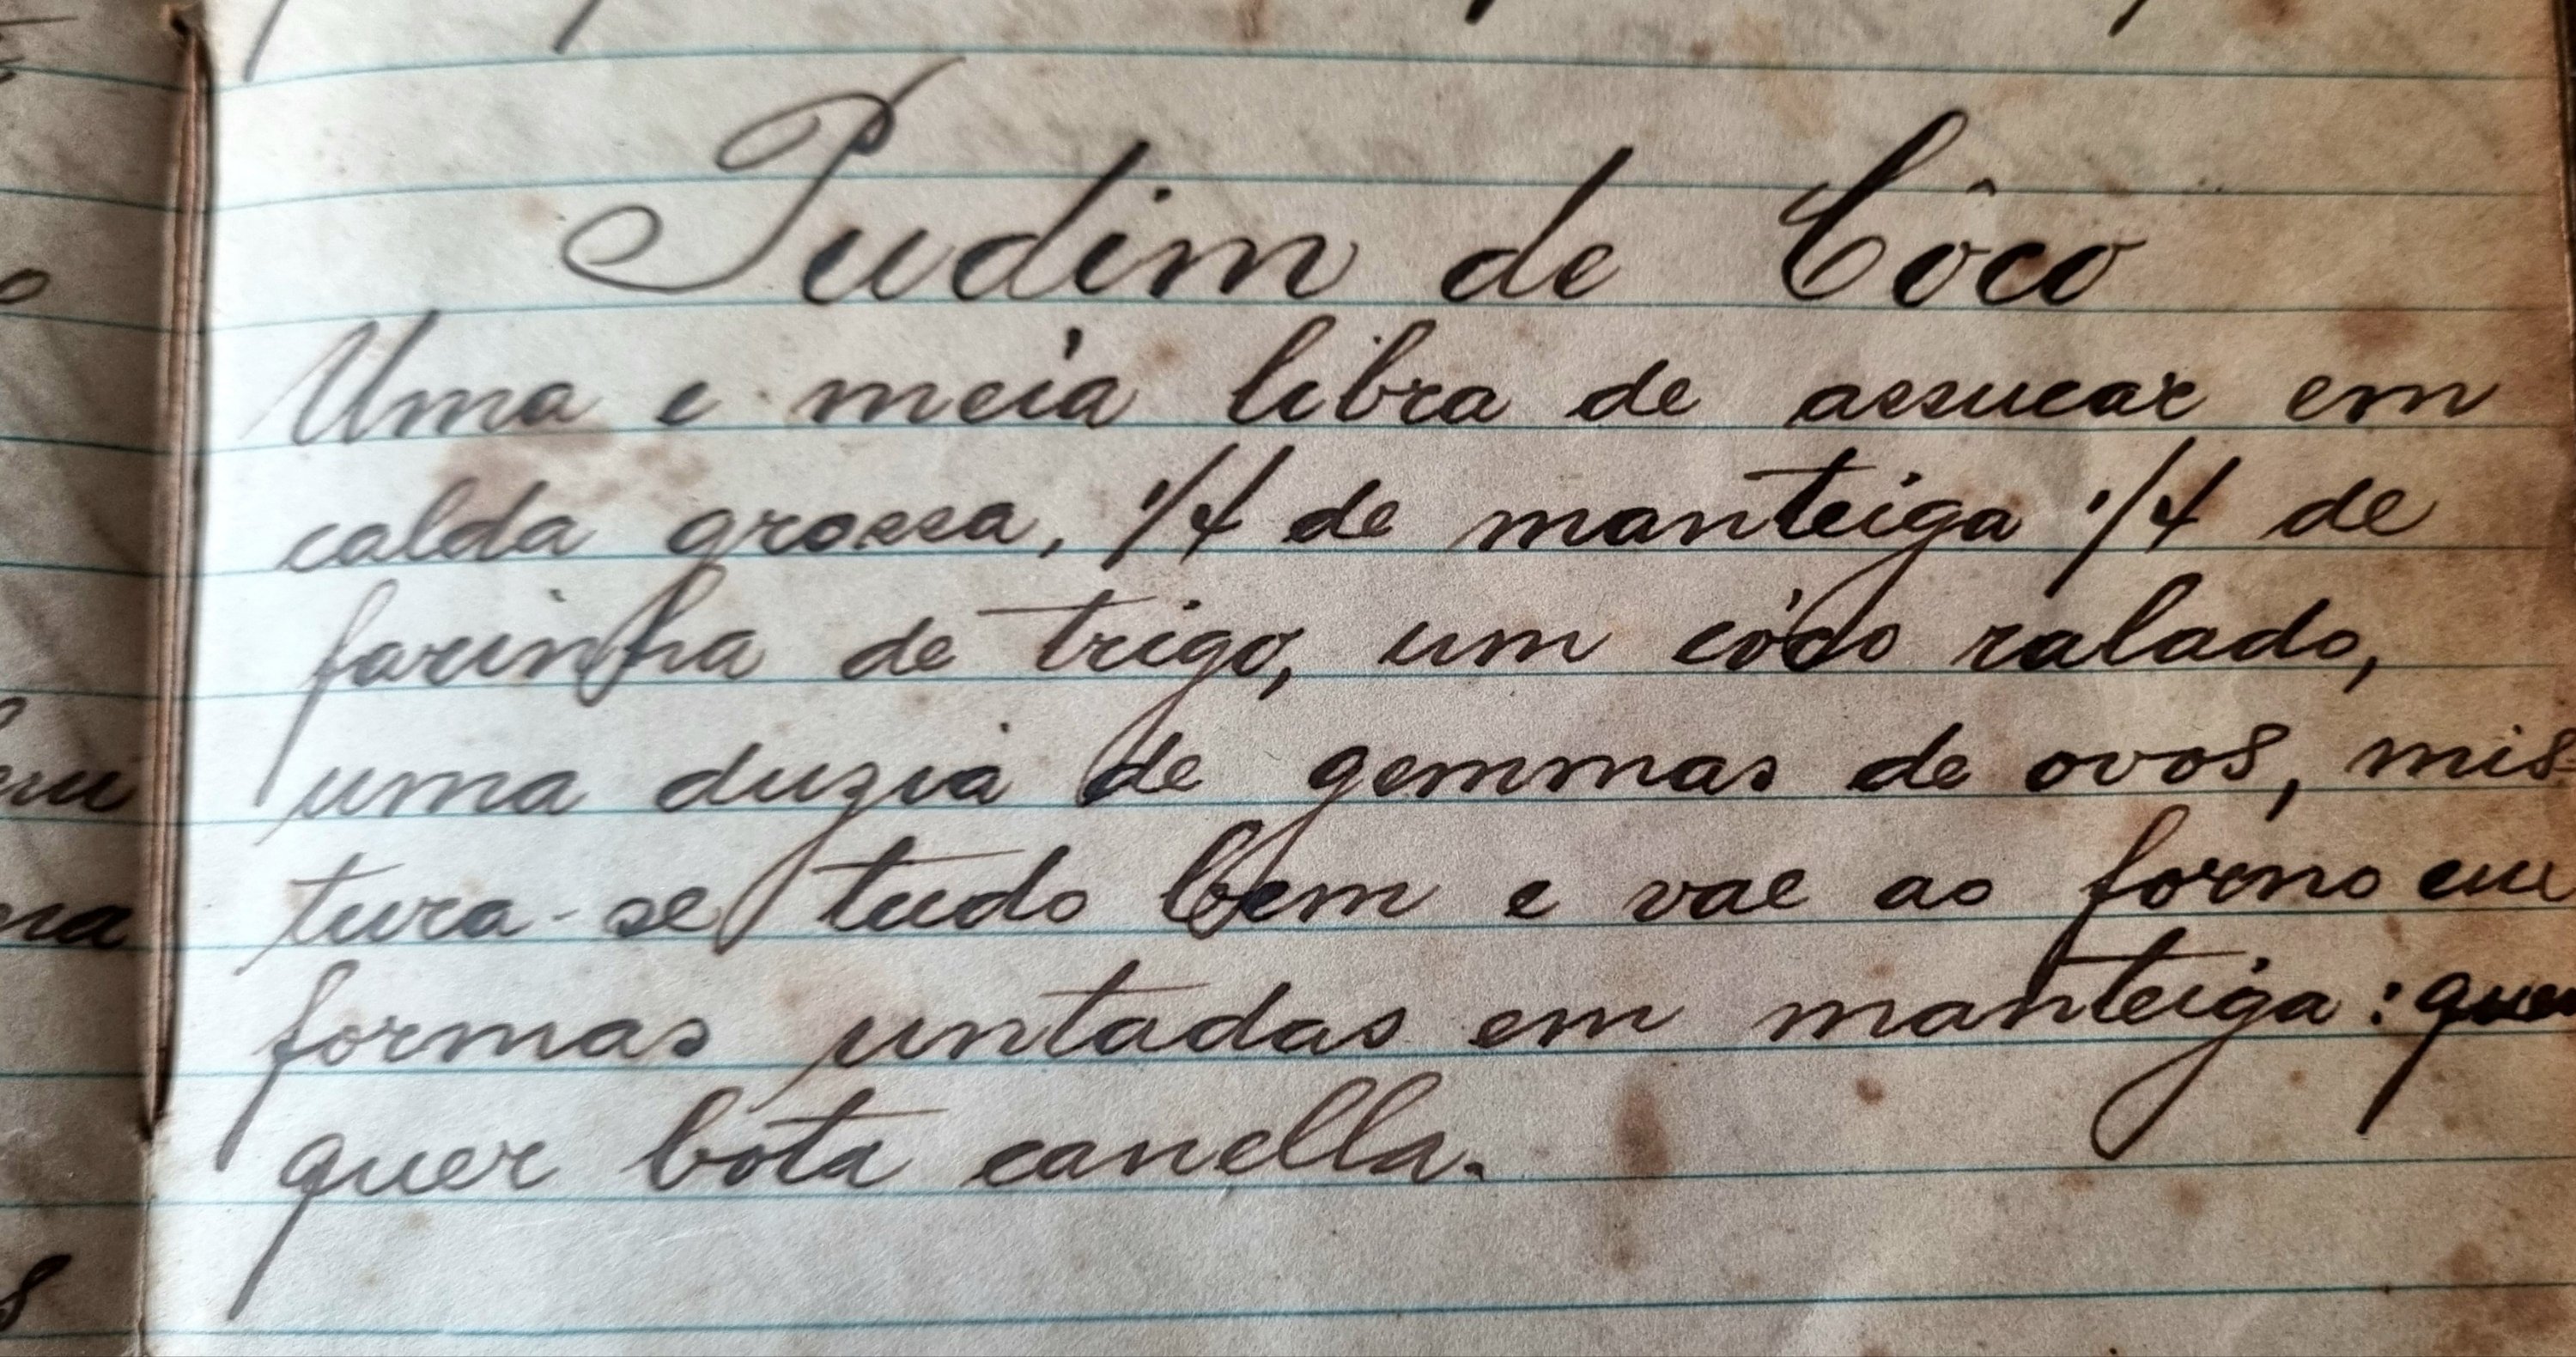 Pudim de Côco
Uma e meia libra de assucar em
calda grossa, 1/4 de manteiga 1/4 de
farinha de trigo, um côco ralado,
uma duzia de gemmas de ovos, mis-
tura-se tudo bem e vae ao forno em
formas untadas em manteiga: quem
quer bota canella.